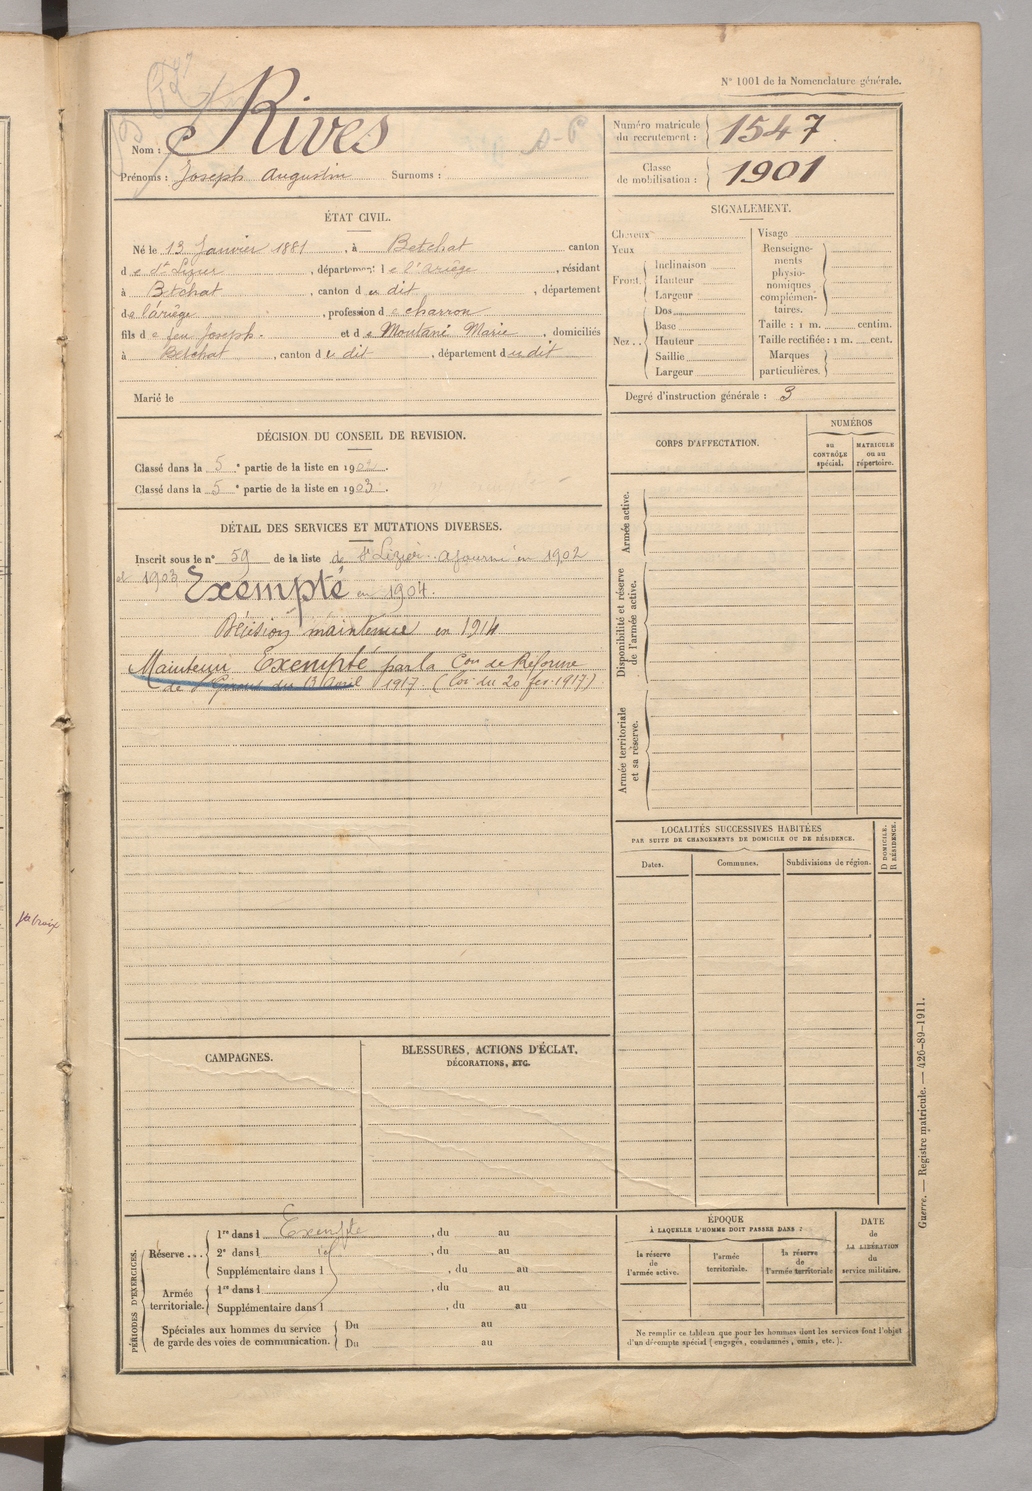 N° 1001 de la Nomenclature générale.
Nom : Rives
Prénoms : Joseph Augustin Surnoms :
Numéro matricule du recrutement : 1547
Classe de mobilisation : 1901
ÉTAT CIVIL.
Né le 13 Janvier 1881, à Betchat canton
de St Lizier, département de l'Ariège, résidant
à Betchat, canton du dit, département
de l'ariège, profession de charron
fils de feu Joseph. et de Montané Marie, domiciliés
à Betchat, canton du dit, département du dit
Marié le
SIGNALEMENT.
Cheveux
Yeux
Front. Inclinaison
Hauteur
Largeur
Nez.. Dos
Base
Hauteur
Saillie
Largeur
Visage
Renseignements physionomiques complémentaires.
Taille : 1 m. centim.
Taille rectifiée : 1 m. cent.
Marques particulières.
Degré d'instruction générale : 3
DÉCISION DU CONSEIL DE REVISION.
Classé dans la 5e partie de la liste en 1902.
Classé dans la 5e partie de la liste en 1903.
CORPS D'AFFECTATION.
NUMÉROS
au CONTRÔLE spécial.
MATRICULE ou au répertoire.
Armée active.
Disponibilité et réserve de l'armée active.
Armée territoriale et sa réserve.
DÉTAIL DES SERVICES ET MUTATIONS DIVERSES.
Inscrit sous le n° 59 de la liste de St Lizier. Ajourné en 1902
et 1903 Exempté en 1904.
Décision maintenue en 1914
Maintenu Exempté par la Con de Réforme
de St Girons du 13 Avril 1917. (Loi du 20 fev. 1917)
LOCALITÉS SUCCESSIVES HABITÉES
PAR SUITE DE CHANGEMENTS DE DOMICILE OU DE RÉSIDENCE.
Dates.
Communes.
Subdivisions de région.
D DOMICILE.
R RÉSIDENCE.
Ste Croix
CAMPAGNES.
BLESSURES, ACTIONS D'ÉCLAT,
DÉCORATIONS, ETC.
PÉRIODES D'EXERCICES.
Réserve ... 1re dans l Exempté, du au
2e dans l , du au
Supplémentaire dans l , du au
Armée territoriale. 1re dans l , du au
Supplémentaire dans l , du au
Spéciales aux hommes du service de garde des voies de communication. Du au
Du au
ÉPOQUE
À LAQUELLE L'HOMME DOIT PASSER DANS :
la réserve de l'armée active.
l'armée territoriale.
la réserve de l'armée territoriale
DATE de LA LIBÉRATION du service militaire.
Ne remplir ce tableau que pour les hommes dont les services font l'objet
d'un décompte spécial (engagés, condamnés, omis, etc.).
Guerre. — Registre matricule. — 426-89-1911.